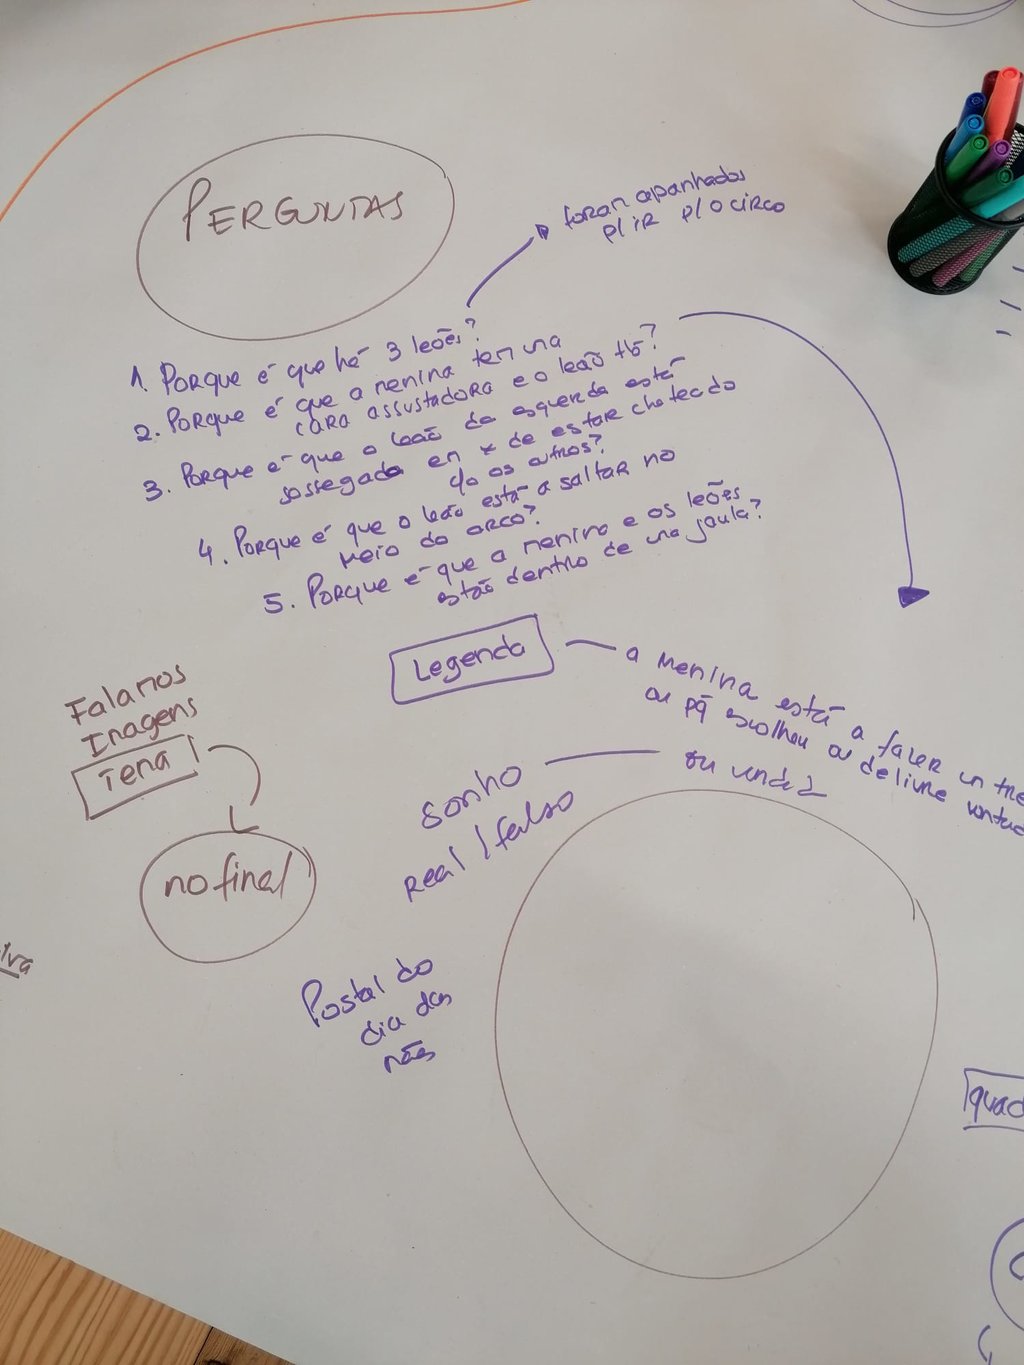 PERGUNTAS
foram apanhados
p/ ir p/ o circo
1. Porque é que há 3 leões?
2. Porque é que a menina tem uma
cara assustadora e o leão tb?
3. Porque é que o leão da esquerda está
sossegado em x de estar chateado
do os outros?
4. Porque é que o leão está a saltar no
meio do arco?
5. Porque é que a menina e os leões
estão dentro de uma jaula?
Legenda
a menina está a fazer un tre
ou pq escolheu ou de livre vontad
Falamos
Imagens
Tema 1
no final
sonho
ou
real / falso
Postal do
dia das
mães
lva
quad